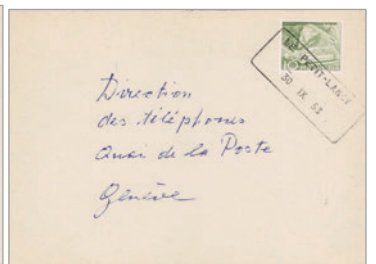 LE PETIT-LANCY
30 IX. 53
Direction
des téléphones
Quai de la Poste
Genève